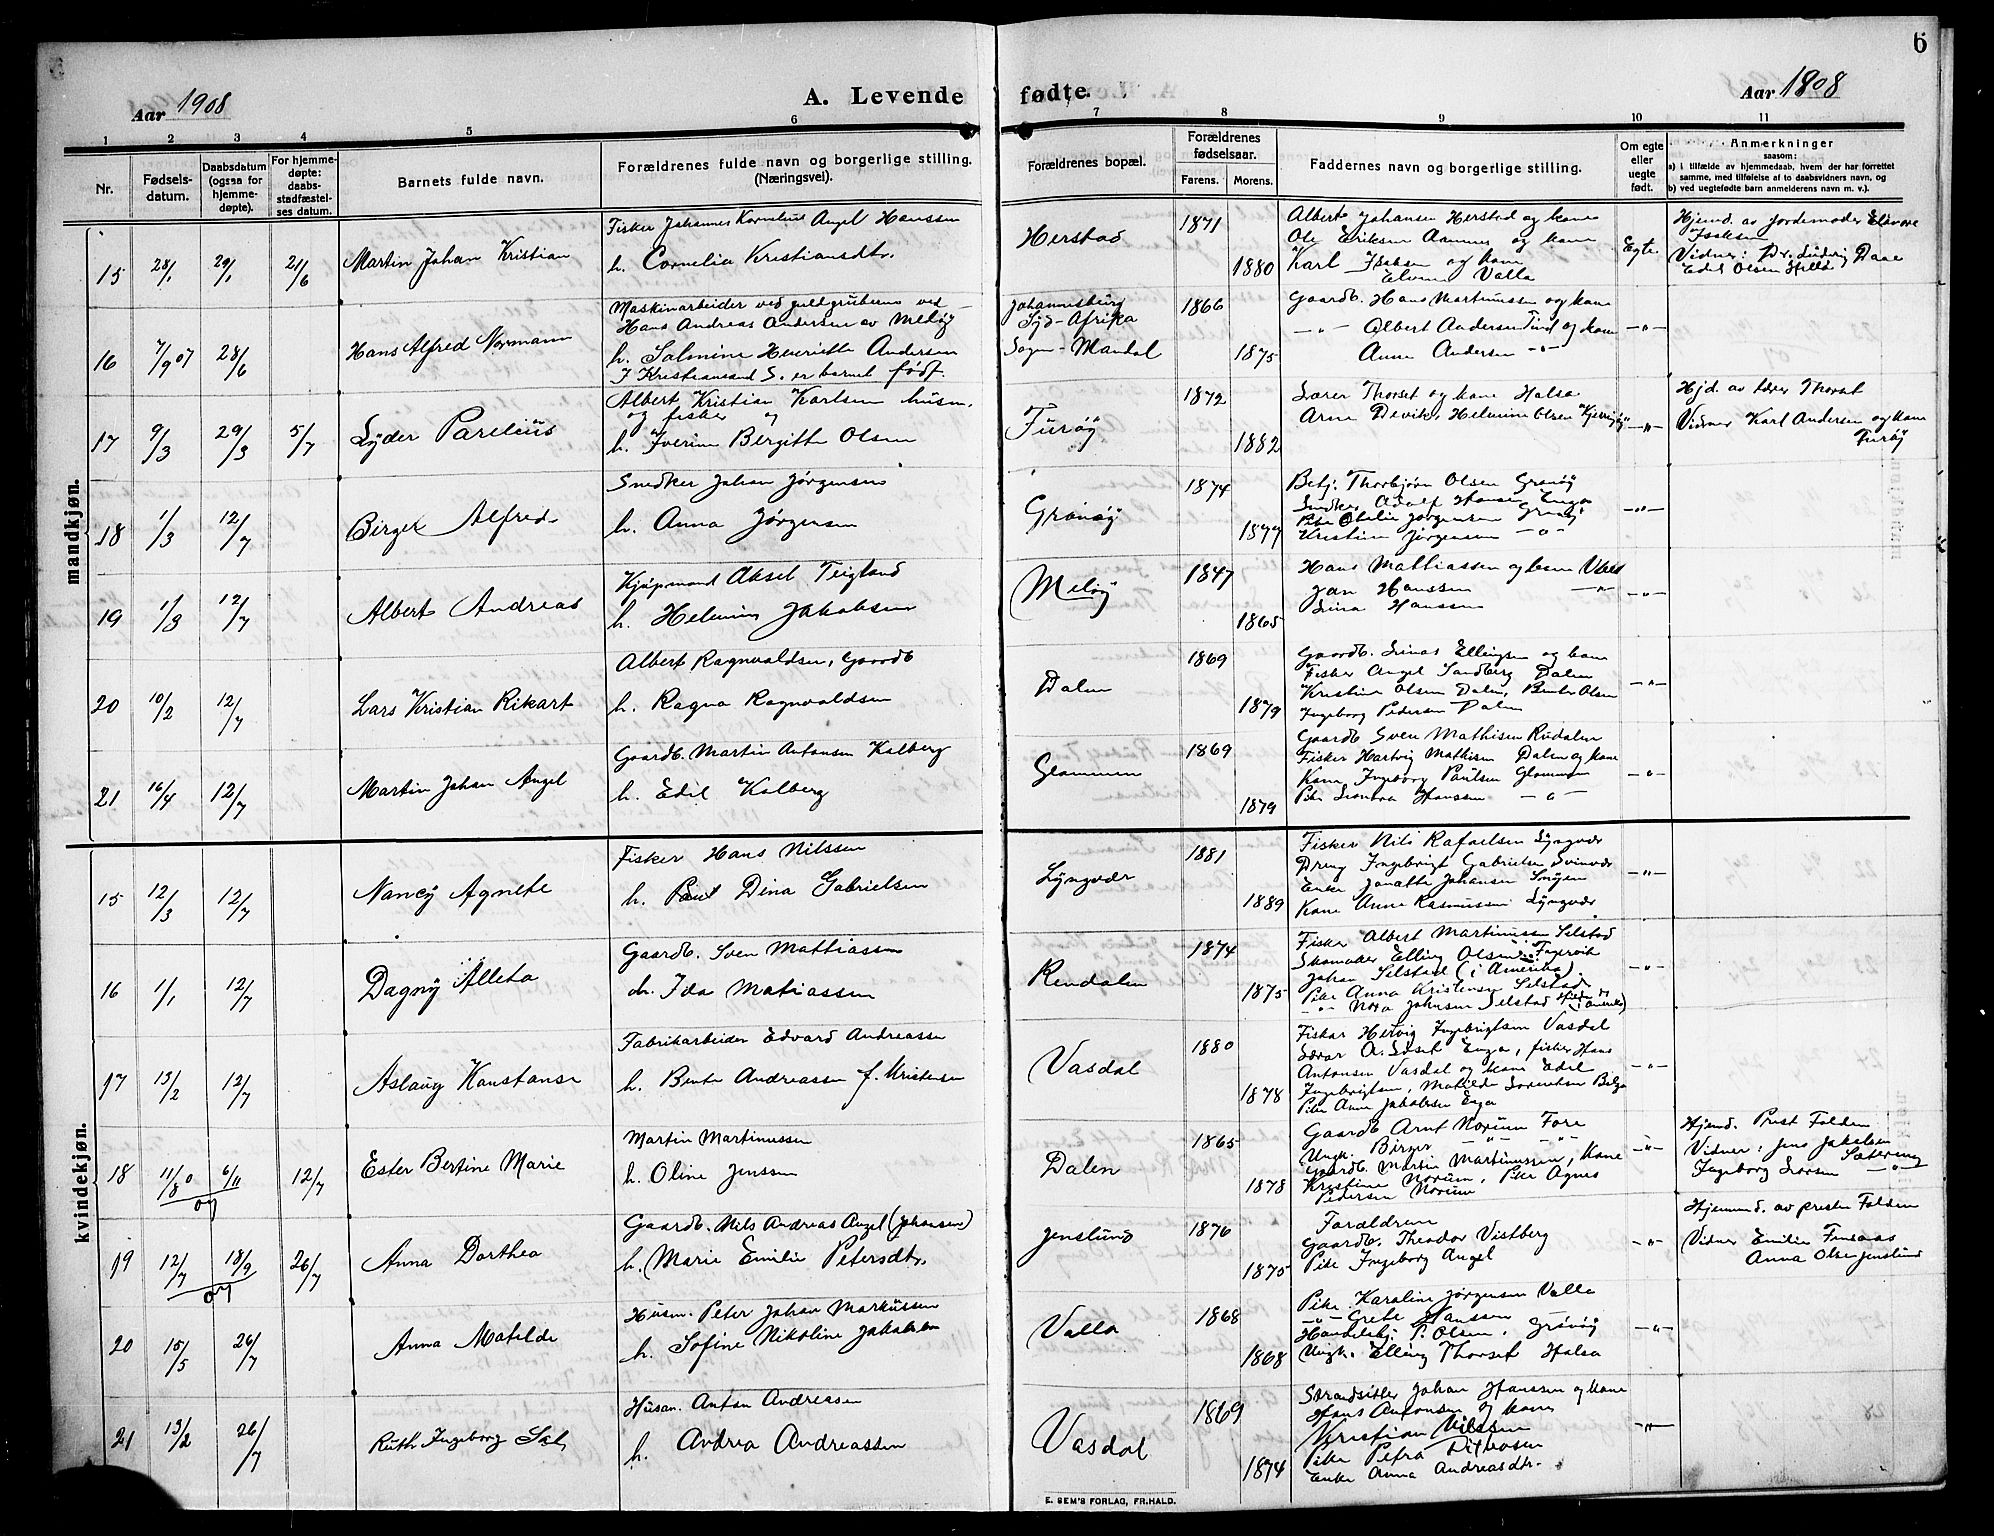 6
Aar 1908
A. Levende fødte.
Aar 1908
1 2 3 4 5 6 7 8 9 10 11
Nr.
Fødsels-
datum.
Daabsdatum
(ogsaa for
hjemme-
døpte).
For hjemme-
døpte:
daabs-
stadfæstel-
ses datum.
Barnets fulde navn.
Forældrenes fulde navn og borgerlige stilling.
(Næringsvei).
Forældrenes bopæl.
Forældrenes
fødselsaar.
Farens. Morens.
Faddernes navn og borgerlige stilling.
Om egte
eller
uegte
født.
Anmerkninger
saasom:
a) i tilfælde av hjemmedaab, hvem der har forrettet
samme, med tilføielse af to daabsvidners navn, og
b) ved uegtefødte barn anmelderens navn m. v.).
mandkjøn.
15 28/1 29/1 21/6 Martin Johan Kristian
Fisker Johannes Kornelius Angel Hanssen
h. Cornelia Kristiansdtr.
Herstad 1871 1880
Albert Johansen Herstad og kone
Ole Eriksen Aamnes og kone
Karl Isaksen og kone
Elvine Valla
Egte.
Hjemd. av Jordemoder Elvare
Isaksen
Vidner: Dr. Ludvig Daae
Edel Olsen Hilld
16 7/9 07 28/6 Hans Alfred Normann
Maskinarbeider ved guldgruberne ved
Hans Andreas Andersen av Meløy
h. Salmine Henriette Andersen
I Kristiansand S. er barnet født.
Johannesburg
Syd-Afrika
Sogn-Mandal
1866 1875
Gaardb. Hans Martinussen og kone
—"— Albert Andersen Tind og kone
Anne Andersen —"—
—"—
17 9/3 29/3 5/7 Lyder Parelius
Albert Kristian Karlsen husm.
og fisker og
h. Iverine Bergitte Olsen
Furøy 1872 1882
Lærer Thorset og kone Halsa
Arne Devik, Helmine Olsen
—"—
Hjd. av lærer Thorset
Vidner Karl Andersen og kone
Furøy
18 1/3 12/7 Birger Alfred
Snedker Johan Jørgensen
h. Anna Jørgensen
Grønøy 1874 1877
Betj. Thorbjørn Olsen Grønøy
Snedker Adolf Hansen Enga
Pike Otelie Jørgensen Grønøy
Kristine Jørgensen —"—
—"—
19 1/3 12/7 Albert Andreas
Kjøpmand Aksel Teigland
h. Helmine Jakobsen
Meløy 1847 1865
Hans Mathiassen og kone
Jan Hanssen —"—
Lina Hanssen
—"—
20 10/2 12/7 Lars Kristian Rikart
Albert Ragnvaldsen, Gaardb
h. Ragna Ragnvaldsen
Dalen 1869 1879
Gaardb. Linas Ellingsen og kone
Fisker Angel Sandberg Dalen
Kristine Olsen Dalen, Bente Olsen
Ingeborg Pedersen Dalen
—"—
21 16/4 12/7 Martin Johan Angel
Gaardb. Martin Antonsen Kalberg
h. Edel Kalberg
Glommen 1869 1879
Gaardb Sven Mathisen Rødalen
Fisker Hartvig Mathisen Dalen og kone
Kone Ingeborg Paulsen Glommen
Pike Hanssen —"—
—"—
kvindekjøn.
15 12/3 12/7 Nancy Agnete
Fisker Hans Nilssen
h. Dina Gabrielsen
Lyngvær 1881 1889
Fisker Nils Rafaelsen Lyngvær
Dreng Ingebrigt Gabrielsen Svinvær
Enke Jonette Johansen
Kone Anne Rasmussen Lyngvær
—"—
16 1/1 12/7 Dagny Alleta
Gaardb. Sven Mattiassen
h. Ida Matiassen
Rendalen 1874 1875
Fisker Albert Martinussen Selstad
Skomaker Elling Olsen
Johan Selstad (i Amerika)
Pike Anna Kristensen Selstad
—"— Nora Johnsen Selstad
—"—
17 13/2 12/7 Aslaug Konstanse
Fabrikarbeider Edvard Andreasse
h. Bente Andreassen f. Kristensen
Vasdal 1880 1878
Fisker Hertvig Ingebrigtsen Vasdal
Lærer A. Loset Enga, fisker Hans
Antonsen Vasdal og kone Edel
Ingebrigtsen, Matilde Lorentsen
Pike Anne Jakobsen Enga
—"—
18 11/8 07 6/11 12/7 Ester Bertine Marie
Martin Martinussen
h. Oline Jenssen
Dalen 1865 1878
Gaardb Arnt Norum Fore
Ungk. Birger —"— —"—
Gaardb. Martin Martinussen, Kone
Kristine Norum, Pike Agnes
Pedersen Norum
—"—
Hjemd. Prest Folden
Vidner: Jens Jakobsen
Ingeborg Larsen Sætering
19 12/7 07 18/9 26/7 Anna Dorthea
Gaardb. Nils Andreas Angel (Johansen)
h. Marie Emilie Petersdtr.
Jenslund 1876 1875
Forældrene
Gaardb. Theodor Vistberg
Pike Ingeborg Angel
—"—
Hjemmed. av presten Folden
Vidner Emilie
Anna Olsen Jenslund
20 15/5 26/7 Anna Matelde
Husm. Peter Johan Markussen
h. Sofine Nikoline Jakobsen
Valla 1868 1868
Pike Karoline Jørgensen Valla
—"— Grete Hanssen
Handelsbj. P. Olsen. Grønøy
Ungk. Elling Thorset Halsa
—"—
21 13/2 26/7 Ruth Ingeborg
Husm. Anton Andreassen
h. Andrea Andreassen
Vasdal 1869 1874
Strandsitter Johan Hanssen og kone
Hans Antonsen og kone
Kristian Nilssen
Pike Petra
Enke Anna Andreasdtr.
—"—
E. SEM'S FORLAG, FR.HALD.